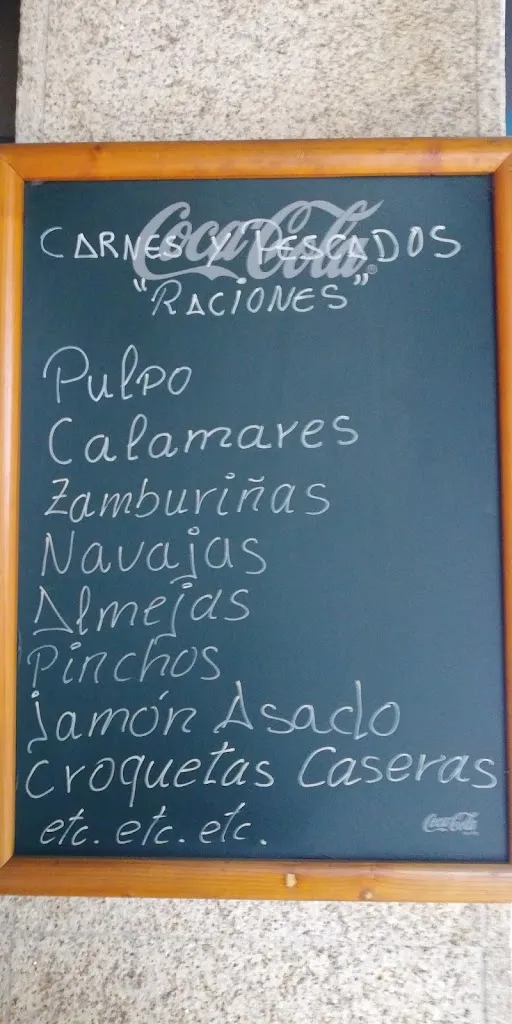 Coca-Cola
CARNES Y PESCADOS
"RACiONES"
Pulpo
Calamares
Zamburiñas
Navajas
Almejas
Pinchos
jamón Asado
Croquetas Caseras
etc. etc. etc.
Coca-Cola